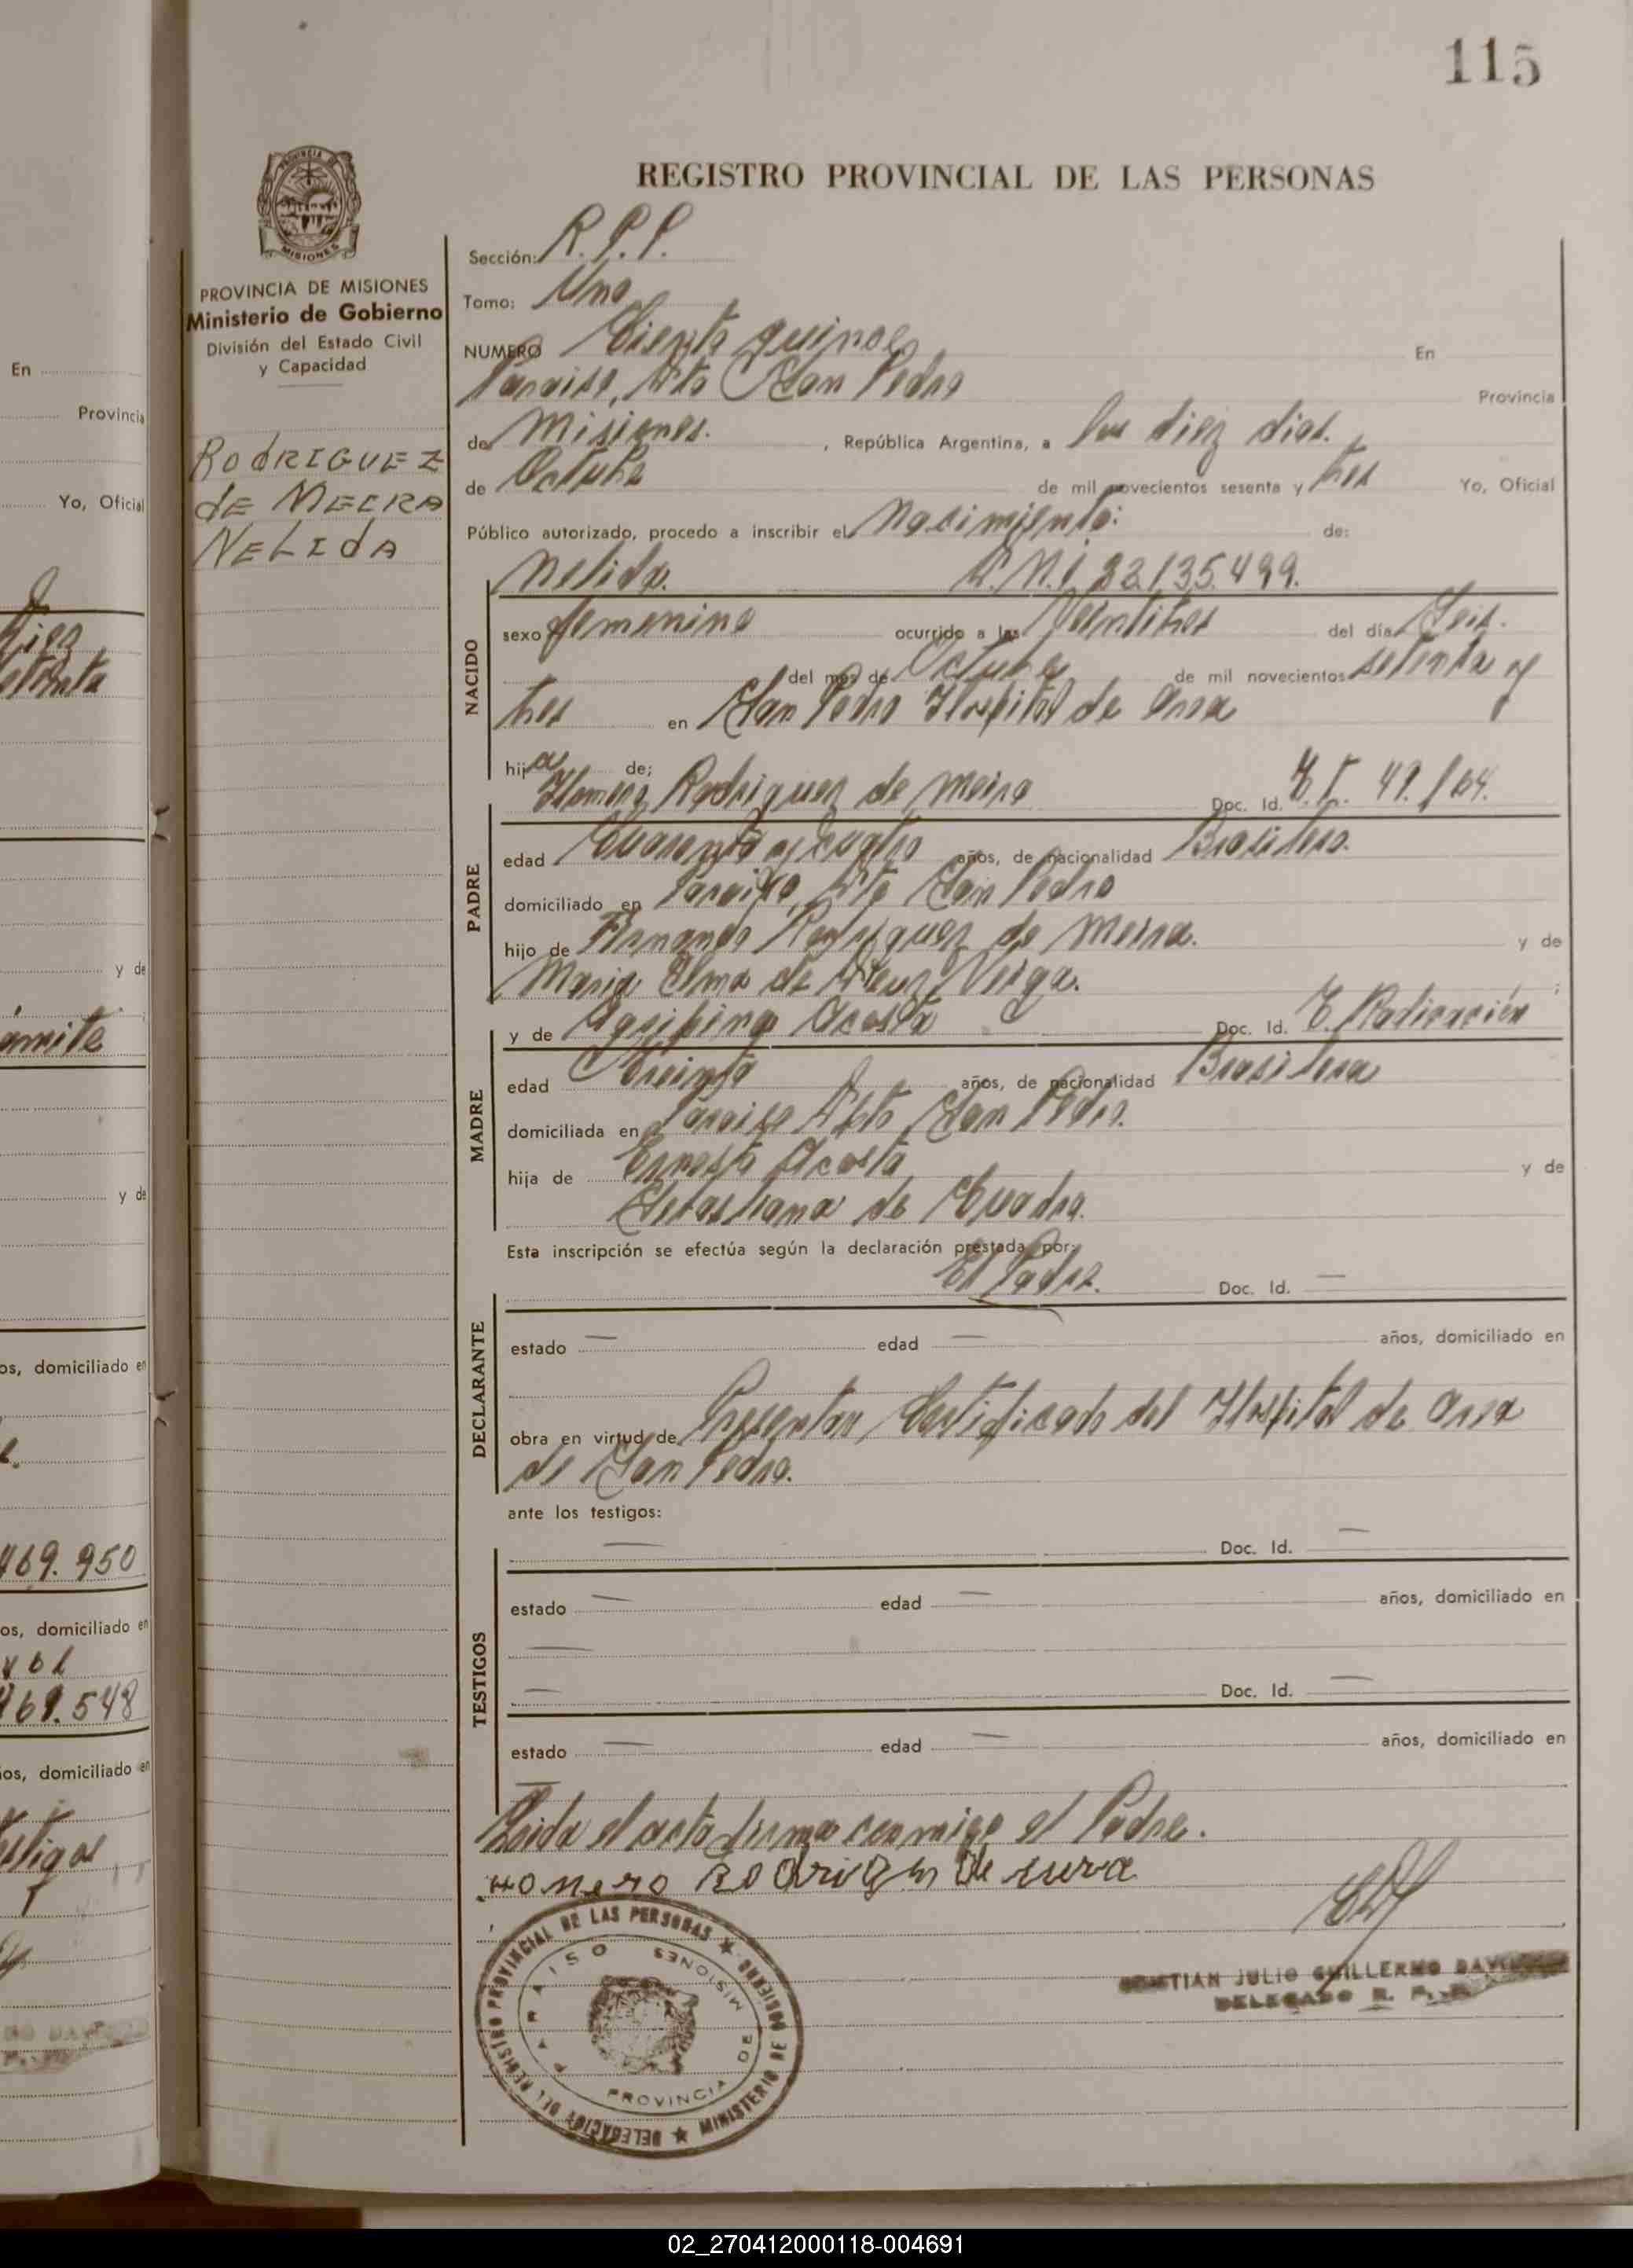 115
REGISTRO PROVINCIAL DE LAS PERSONAS
PROVINCIA DE MISIONES
Ministerio de Gobierno
División del Estado Civil
y Capacidad
RODRIGUEZ
DE MEERA
NELIDA
Sección: R.P.P.
Tomo: Uno
NUMERO Ciento quince En
Paraiso, Dto San Pedro Provincia
de Misiones. , República Argentina, a los diez dias.
de Octubre de mil novecientos sesenta y tres Yo, Oficial
Público autorizado, procedo a inscribir el Nacimiento: de:
Nelida. D.N.I. 22.135.499.
NACIDO
sexo femenino ocurrido a las Veintitres del día Seis.
del mes de Octubre de mil novecientos setenta y
tres en San Pedro Hospital de Area
hija de;
PADRE
Homero Rodriguez de Meira Doc. Id. 49.164.
edad Cuarenta y Cuatro años, de nacionalidad Brasilero.
domiciliado en Paraiso, Dto San Pedro
hijo de Fernando Rodriguez de Meira. y de
Maria de Veiga.
MADRE
y de Acosta Doc. Id. Radicación
edad Treinta años, de nacionalidad Brasilera
domiciliada en Paraiso Dpto San Pedro.
hija de Ernesto Acosta y de
Sebastiana de Cuadra.
Esta inscripción se efectúa según la declaración prestada por:
El Padre. Doc. Id. —
DECLARANTE
estado — edad — años, domiciliado en
obra en virtud de Presentar Certificado del Hospital de Area
de San Pedro.
ante los testigos:
TESTIGOS
— Doc. Id. —
estado — edad — años, domiciliado en
—
— Doc. Id. —
estado — edad — años, domiciliado en
—
Leida el acta firma conmigo el Padre.
Homero
JULIO GUILLERMO
DELEGADO R. P. P.
DELEGACION DEL REGISTRO PROVINCIAL DE LAS PERSONAS ★ MINISTERIO DE GOBIERNO ★
PARAISO
PROVINCIA DE MISIONES
En
Provincia
Yo, Oficial
y de
y de
os, domiciliado en
469.950
os, domiciliado en
469.548
os, domiciliado en
02_270412000118-004691